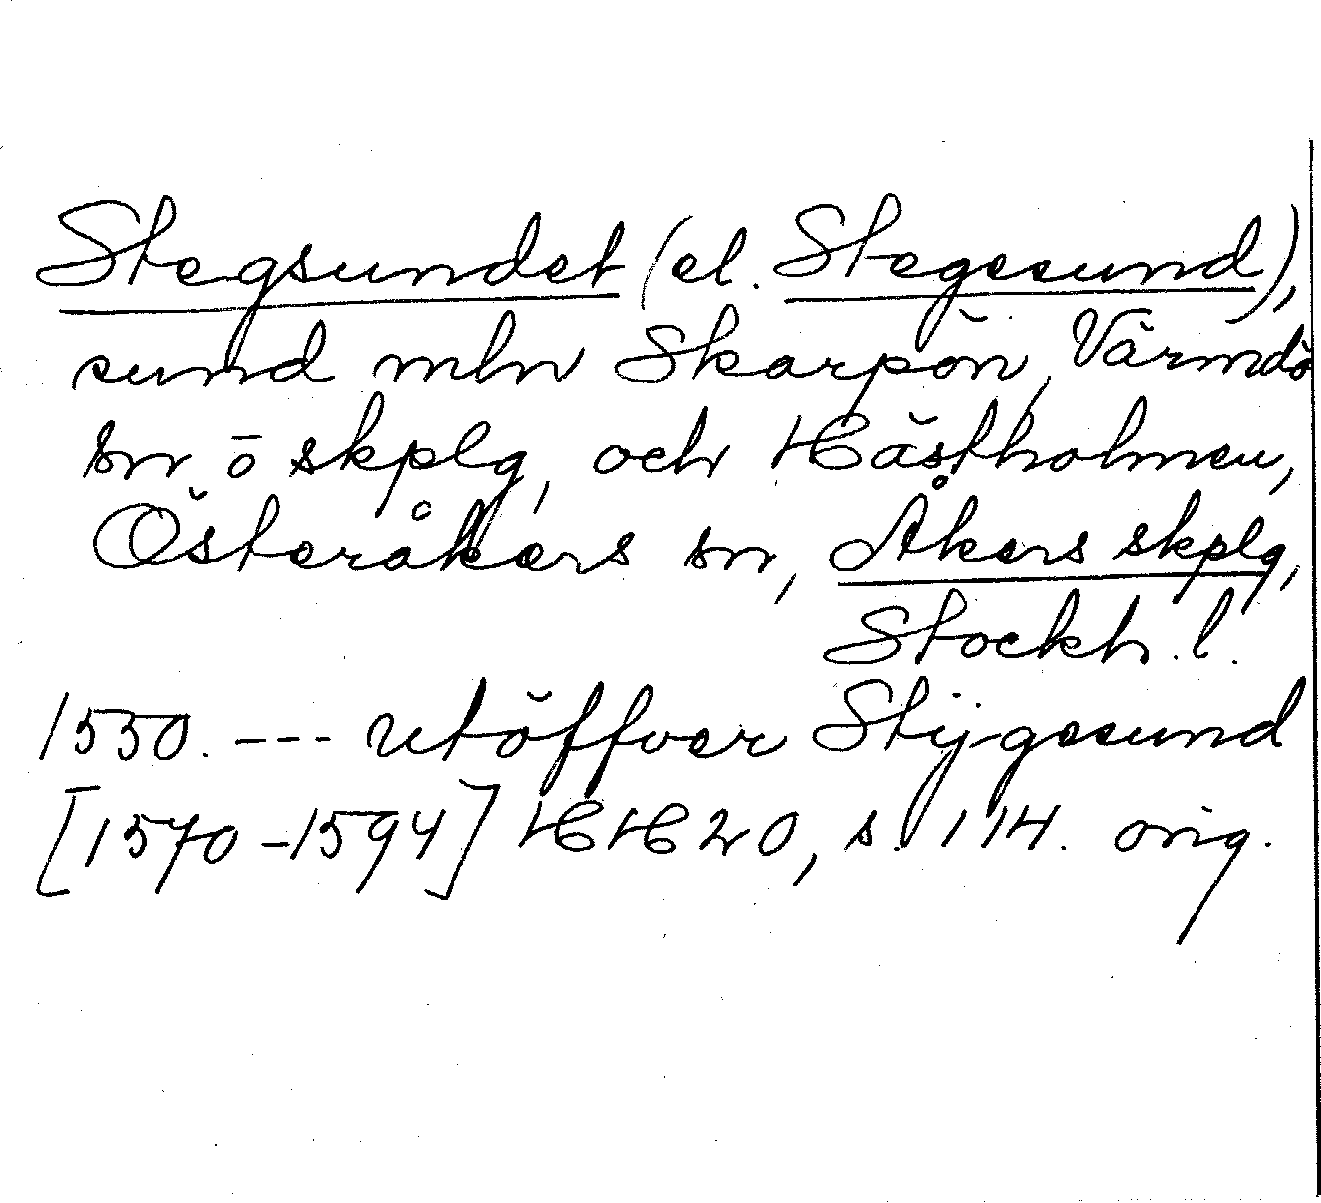 Stegsundet (el. Stegesund),
sund mln Skarpön, Värmdö
sn o skplg, och Hästholmen,
Österåkers sn, Åkers skplg,
Stockh. l.
1550. --- utöffver Stÿgesund
[1570-1594] HH 20, s. 114. orig.